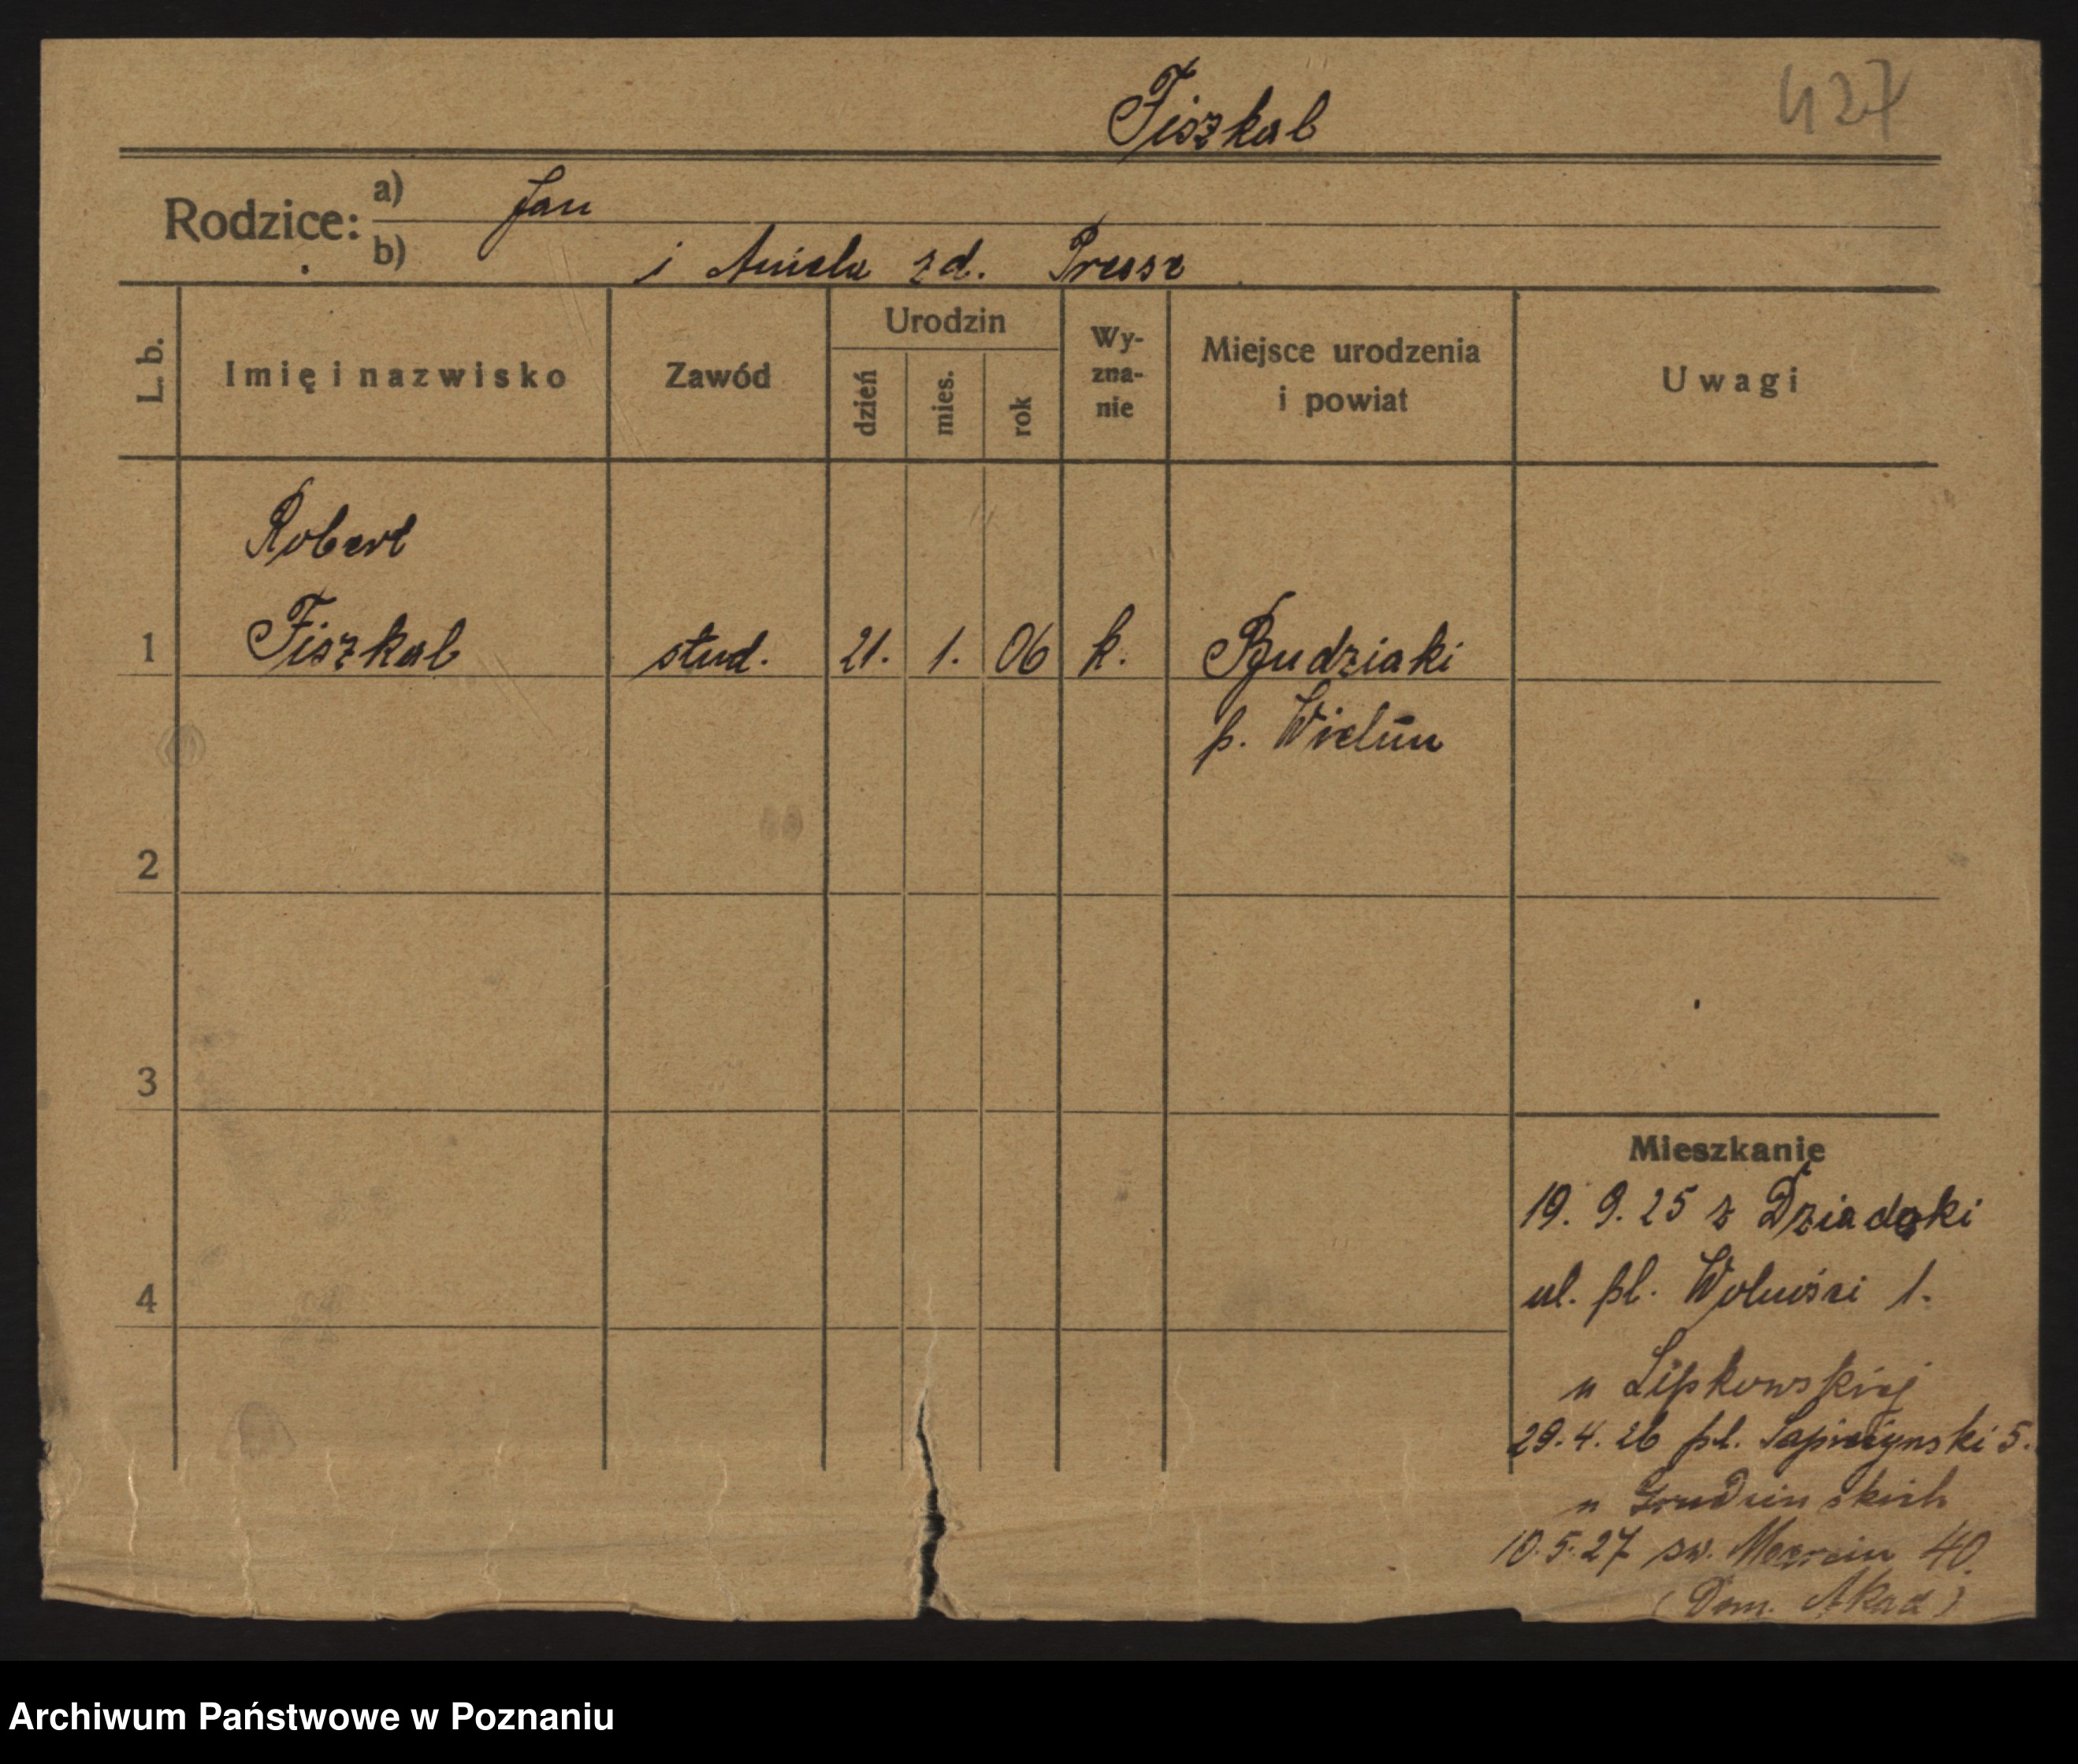 Fiszkal
437
Rodzice:
a) Jan
b) i Aniela zd. Presse
L. b.
Imię i nazwisko
Zawód
Urodzin
dzień
mies.
rok
Wy-
zna-
nie
Miejsce urodzenia
i powiat
Uwagi
Robert
1 Fiszkal stud. 21. 1. 06 k. Budziaki
p. Wieluń
2
3
4
Mieszkanie
19. 9. 25 z
ul. pl. Wolności 1.
u Lipkowskiej
29. 4. 26 pl. Sapieżynski 5.
u
10. 5. 27 św. Marcin 40.
(Dom. Akad)
Archiwum Państwowe w Poznaniu